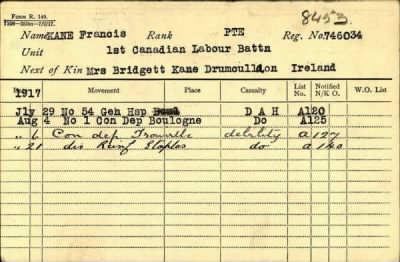 Form R. 149.
8453
Name KANE Francis Rank PTE Reg. No. 746034
Unit 1st Canadian Labour Battn
Next of Kin Mrs Bridgett Kane Drumcullion Ireland
Movement Casualty List No. Notified N/K O. W.O. List
1917
Jly 29 No 54 Geh Hsp D A H A120
Aug 4 No 1 Con Dep Boulogne Do A125
" 6 Con dep Trouville debility a 127
" 21 dis Reinf Etaples do a 140